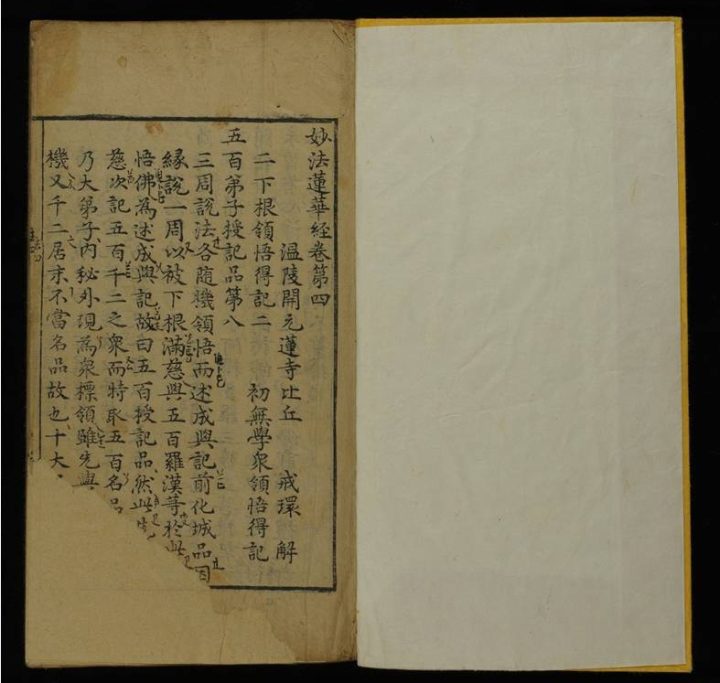 妙法蓮華経卷第四
温陵開元蓮寺比丘 戒環 解
二下根領悟得記二 初無學衆領悟得記
五百弟子授記品第八
三周說法各随機領悟而述成與記前化城品因
緣說一周以被下根滿慈與五百羅漢等於此
悟佛為述成與記故曰五百授記品然此
慈次記五百千二之衆而特取五百名品
乃大弟子内秘外現為衆標領雖先與
機又千二居末不當名品故也十大